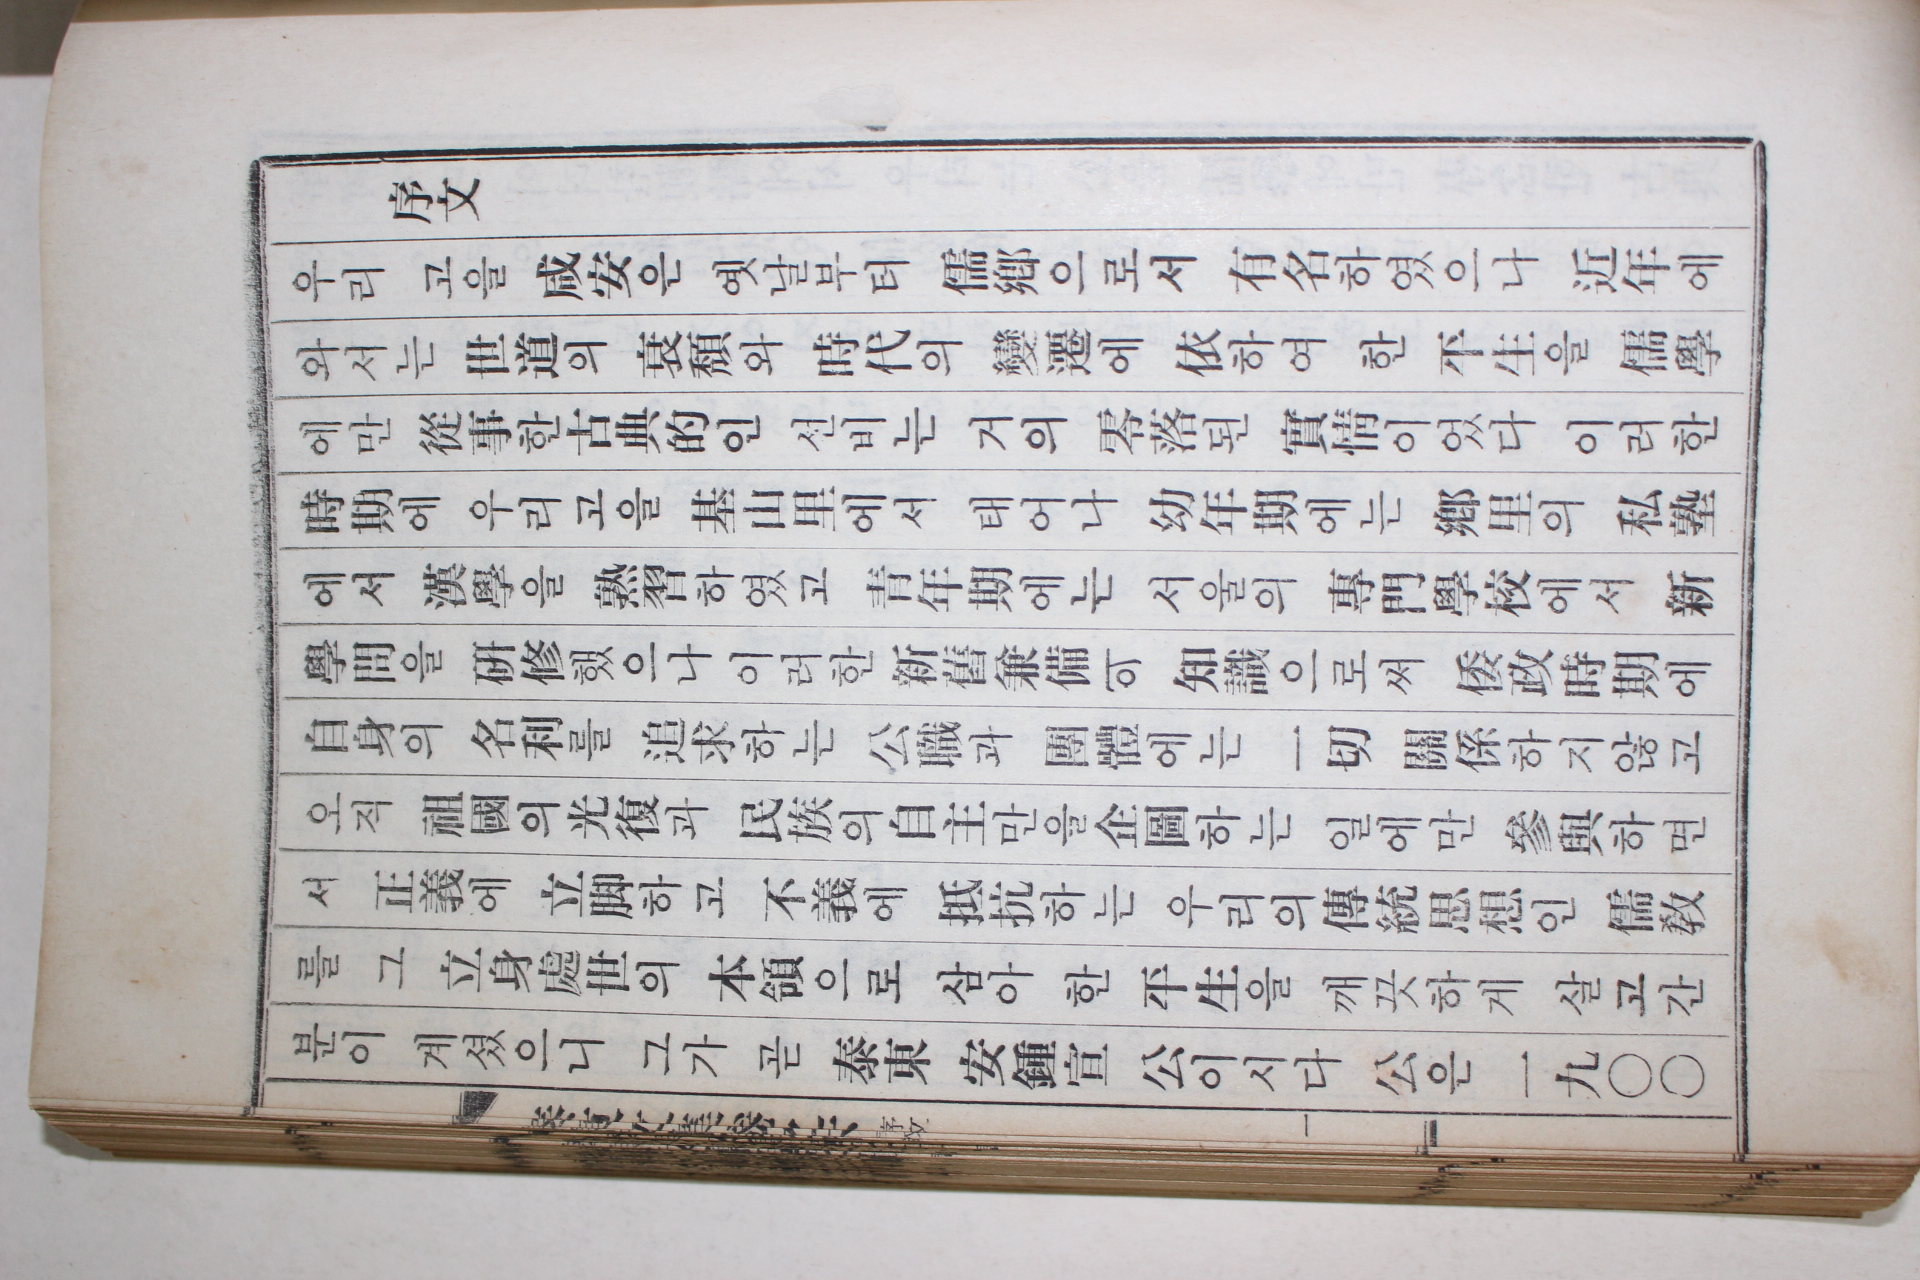 序文
우리 고을 咸安은 옛날부터 儒鄕으로서 有名하였으나 近年에
와서는 世道의 衰頹와 時代의 變遷에 依하여 한 平生을 儒學
에만 從事한 古典的인 선비는 거의 零落된 實情이었다 이러한
時期에 우리 고을 基山里에서 태어나 幼年期에는 鄕里의 私塾
에서 漢學을 熟習하였고 靑年期에는 서울의 專門學校에서 新
學問을 硏修했으나 이러한 新舊兼備의 知識으로써 倭政時期에
自身의 名利를 追求하는 公職과 團體에는 一切 關係하지 않고
오직 祖國의 光復과 民族의 自主만을 企圖하는 일에만 參與하면
서 正義에 立脚하고 不義에 抵抗하는 우리의 傳統思想인 儒敎
를 그 立身處世의 本領으로 삼아 한 平生을 깨끗하게 살고 간
분이 계셨으니 그가 곧 泰東 安鍾宣 公이시다 公은 一九〇〇
序文 一